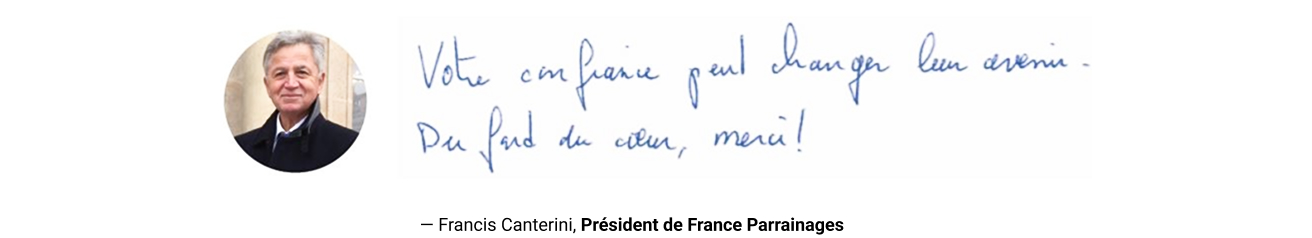 Votre confiance peut changer leur avenir.
Du fond du cœur, merci!
— Francis Canterini, Président de France Parrainages